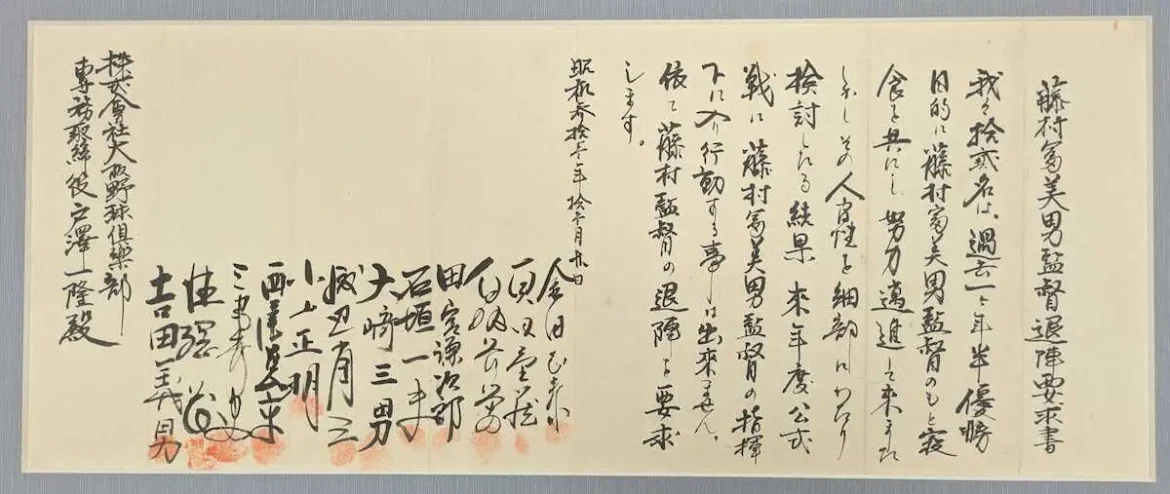 藤村富美男監督退陣要求書
我々拾弐名は、過去一ヶ年半優勝
目的に藤村富美男監督のもと寝
食を共にし努力邁進して来ました
しかしその人間性を細部にわたり
検討したる結果来年度公式
戦に藤村富美男監督の指揮
下に入り行動する事は出来ません。
依て藤村監督の退陣を要求
します。
昭和参拾壱年拾壱月九日
金田正泰
真田重蔵
白坂長栄
田宮謙次郎
石垣一夫
大崎三男
渡辺省三
小山正明
西村
三宅秀史
吉田義男
株式會社大阪野球倶楽部
専務取締役戸澤一隆殿